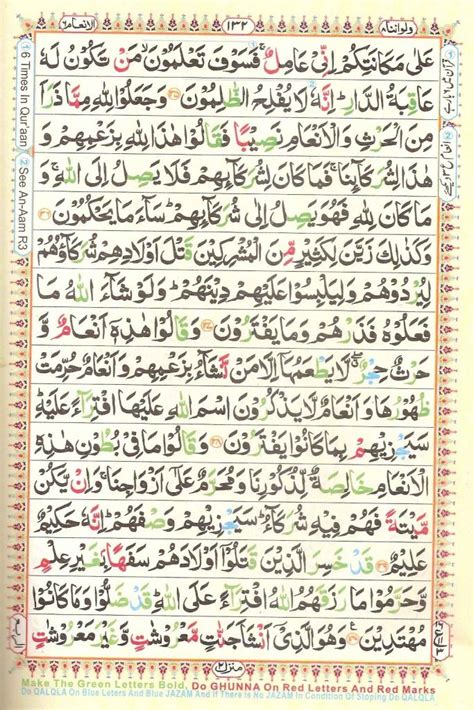 ولواننا ٨
١٣٢
الانعام ٦
عَلٰی مَكَانَتِكُمْ اِنِّیْ عَامِلٌ ۚ فَسَوْفَ تَعْلَمُوْنَ ۙ مَنْ تَكُوْنُ لَهٗ
عَاقِبَةُ الدَّارِ ؕ اِنَّهٗ لَا یُفْلِحُ الظّٰلِمُوْنَ ﴿۱۳۵﴾ وَجَعَلُوْا لِلّٰهِ مِمَّا ذَرَاَ
مِنَ الْحَرْثِ وَالْاَنْعَامِ نَصِیْبًا فَقَالُوْا هٰذَا لِلّٰهِ بِزَعْمِهِمْ وَ
هٰذَا لِشُرَكَآئِنَا ۚ فَمَا كَانَ لِشُرَكَآئِهِمْ فَلَا یَصِلُ اِلَی اللّٰهِ ۚ وَ
مَا كَانَ لِلّٰهِ فَهُوَ یَصِلُ اِلٰی شُرَكَآئِهِمْ ؕ سَآءَ مَا یَحْكُمُوْنَ ﴿۱۳۶﴾
وَكَذٰلِكَ زَیَّنَ لِكَثِیْرٍ مِّنَ الْمُشْرِكِیْنَ قَتْلَ اَوْلَادِهِمْ شُرَكَآؤُهُمْ
لِیُرْدُوْهُمْ وَلِیَلْبِسُوْا عَلَیْهِمْ دِیْنَهُمْ ؕ وَلَوْ شَآءَ اللّٰهُ مَا
فَعَلُوْهُ فَذَرْهُمْ وَمَا یَفْتَرُوْنَ ﴿۱۳۷﴾ وَقَالُوْا هٰذِهٖۤ اَنْعَامٌ وَّ
حَرْثٌ حِجْرٌ ۖ لَّا یَطْعَمُهَاۤ اِلَّا مَنْ نَّشَآءُ بِزَعْمِهِمْ وَاَنْعَامٌ حُرِّمَتْ
ظُهُوْرُهَا وَاَنْعَامٌ لَّا یَذْكُرُوْنَ اسْمَ اللّٰهِ عَلَیْهَا افْتِرَآءً عَلَیْهِ ؕ
سَیَجْزِیْهِمْ بِمَا كَانُوْا یَفْتَرُوْنَ ﴿۱۳۸﴾ وَقَالُوْا مَا فِیْ بُطُوْنِ هٰذِهِ
الْاَنْعَامِ خَالِصَةٌ لِّذُكُوْرِنَا وَمُحَرَّمٌ عَلٰۤی اَزْوَاجِنَا ۚ وَاِنْ یَّكُنْ
مَّیْتَةً فَهُمْ فِیْهِ شُرَكَآءُ ؕ سَیَجْزِیْهِمْ وَصْفَهُمْ ؕ اِنَّهٗ حَكِیْمٌ
عَلِیْمٌ ﴿۱۳۹﴾ قَدْ خَسِرَ الَّذِیْنَ قَتَلُوْۤا اَوْلَادَهُمْ سَفَهًۢا بِغَیْرِ عِلْمٍ
وَّحَرَّمُوْا مَا رَزَقَهُمُ اللّٰهُ افْتِرَآءً عَلَی اللّٰهِ ؕ قَدْ ضَلُّوْا وَمَا كَانُوْا
مُهْتَدِیْنَ ﴿۱۴۰﴾ وَهُوَ الَّذِیْۤ اَنْشَاَ جَنّٰتٍ مَّعْرُوْشٰتٍ وَّغَیْرَ مَعْرُوْشٰتٍ
منزل ٢
الربع
1 6 Times In Qur'aan 2 See An-Aam R3
Make The Green Letters Bold, Do GHUNNA On Red Letters And Red Marks
Do QALQLA On Blue Leters And Blue JAZAM And If There is No JAZAM In Condition Of Stoping Do QALQLA